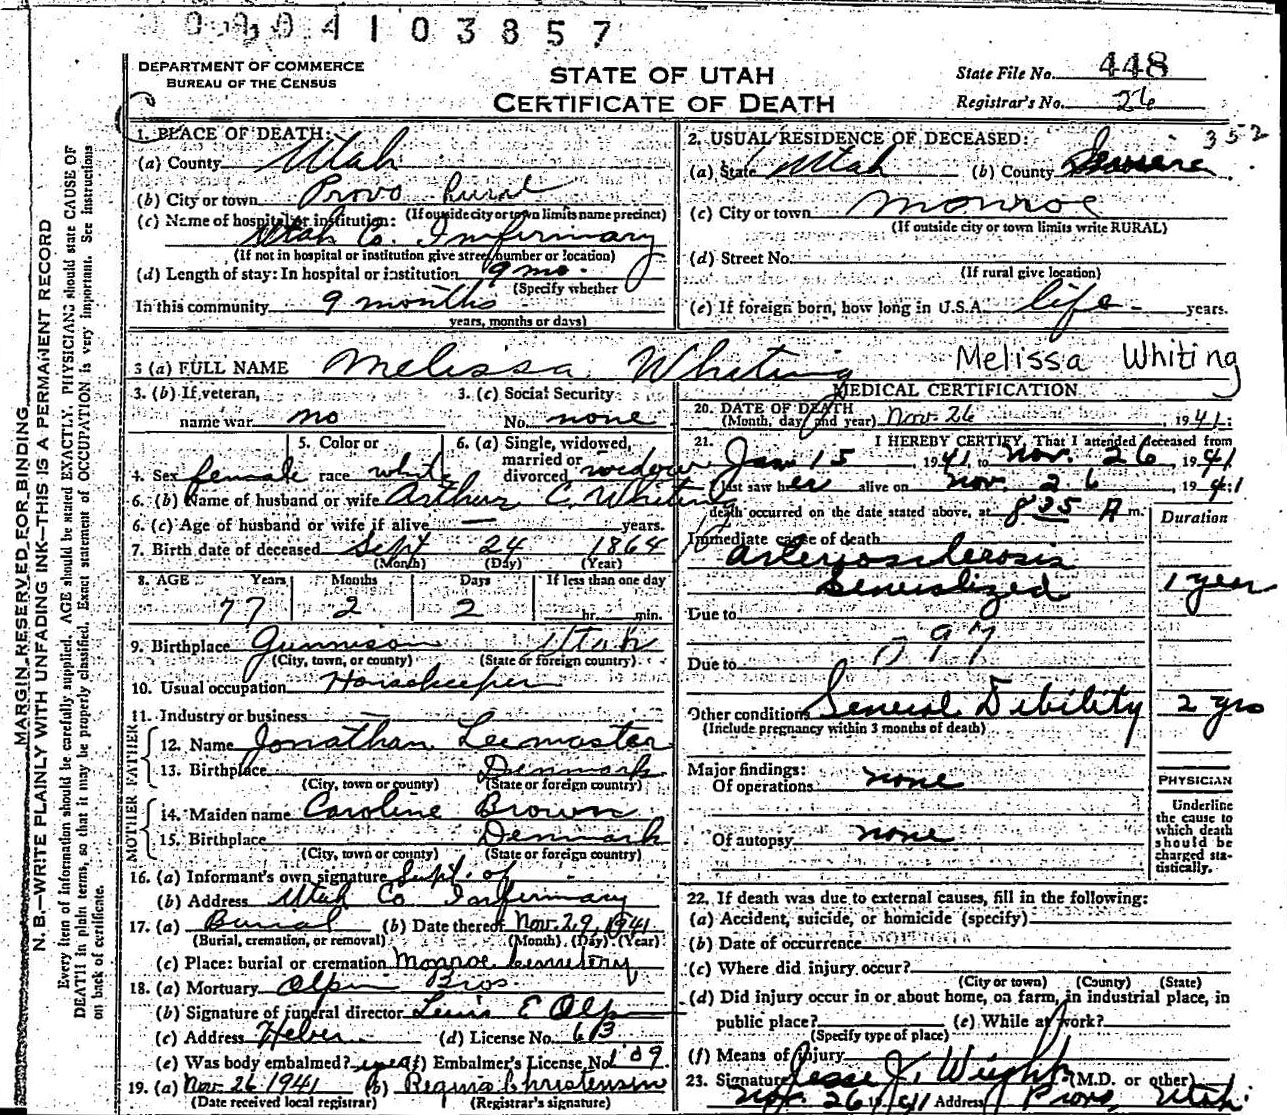 0004103857
DEPARTMENT OF COMMERCE
BUREAU OF THE CENSUS
STATE OF UTAH
CERTIFICATE OF DEATH
State File No. 448
Registrar's No. 26
352
MARGIN RESERVED FOR BINDING
N. B.—WRITE PLAINLY WITH UNFADING INK—THIS IS A PERMANENT RECORD
Every item of information should be carefully supplied. AGE should be stated EXACTLY. PHYSICIANS should state CAUSE OF
DEATH in plain terms, so that it may be properly classified. Exact statement of OCCUPATION is very important. See instructions
on back of certificate.
1. PLACE OF DEATH:
(a) County Utah
(b) City or town Provo Rural
(If outside city or town limits name precinct)
(c) Name of hospital or institution:
Utah Co. Infirmary
(If not in hospital or institution give street number or location)
(d) Length of stay: In hospital or institution 9 mo.
(Specify whether
In this community 9 months
years, months or days)
2. USUAL RESIDENCE OF DECEASED:
(a) State Utah (b) County
(c) City or town Monroe
(If outside city or town limits write RURAL)
(d) Street No.
(If rural give location)
(e) If foreign born, how long in U.S.A. life years.
3 (a) FULL NAME Melissa Whiting Melissa Whiting
3. (b) If veteran, name war no
3. (c) Social Security No. none
4. Sex female
5. Color or race white
6. (a) Single, widowed, married or divorced widow
6. (b) Name of husband or wife Arthur C. Whiting
6. (c) Age of husband or wife if alive — years.
7. Birth date of deceased Sept 24 1864
(Month) (Day) (Year)
8. AGE Years Months Days If less than one day
77 2 2 hr. min.
9. Birthplace Gunnison Utah
(City, town, or county) (State or foreign country)
10. Usual occupation Housekeeper
11. Industry or business
FATHER
12. Name Jonathan Lemaster
13. Birthplace Denmark
(City, town or county) (State or foreign country)
MOTHER
14. Maiden name Caroline Brown
15. Birthplace Denmark
(City, town or county) (State or foreign country)
16. (a) Informant's own signature Supt. of
(b) Address Utah Co Infirmary
17. (a) Burial (b) Date thereof Nov. 29, 1941
(Burial, cremation, or removal) (Month) (Day) (Year)
(c) Place: burial or cremation Monroe Cemetery
18. (a) Mortuary Olpin Bros.
(b) Signature of funeral director E Olpin
(c) Address Heber (d) License No. 613
(e) Was body embalmed? yes (f) Embalmer's License No.
19. (a) Nov 26 1941 (b) Regina Christensen
(Date received local registrar) (Registrar's signature)
MEDICAL CERTIFICATION
20. DATE OF DEATH
(Month, day and year) Nov. 26, 1941
21. I HEREBY CERTIFY, That I attended deceased from
Jan 15, 1941 to Nov. 26, 1941
I last saw her alive on Nov. 26, 1941
death occurred on the date stated above, at 8 35 A m.
Duration
Immediate cause of death
Arteriosclerosis
Generalized 1 year
Due to
97
Due to
Other conditions General Debility 2 yrs
(Include pregnancy within 3 months of death)
Major findings:
Of operations none
Of autopsy none
PHYSICIAN
Underline
the cause to
which death
should be
charged sta-
tistically.
22. If death was due to external causes, fill in the following:
(a) Accident, suicide, or homicide (specify)
(b) Date of occurrence
(c) Where did injury occur?
(City or town) (County) (State)
(d) Did injury occur in or about home, on farm, in industrial place, in
public place? (e) While at work?
(Specify type of place)
(f) Means of injury
23. Signature Jesse J. Weight (M.D. or other)
Nov. 26 1941 Address Provo, Utah.